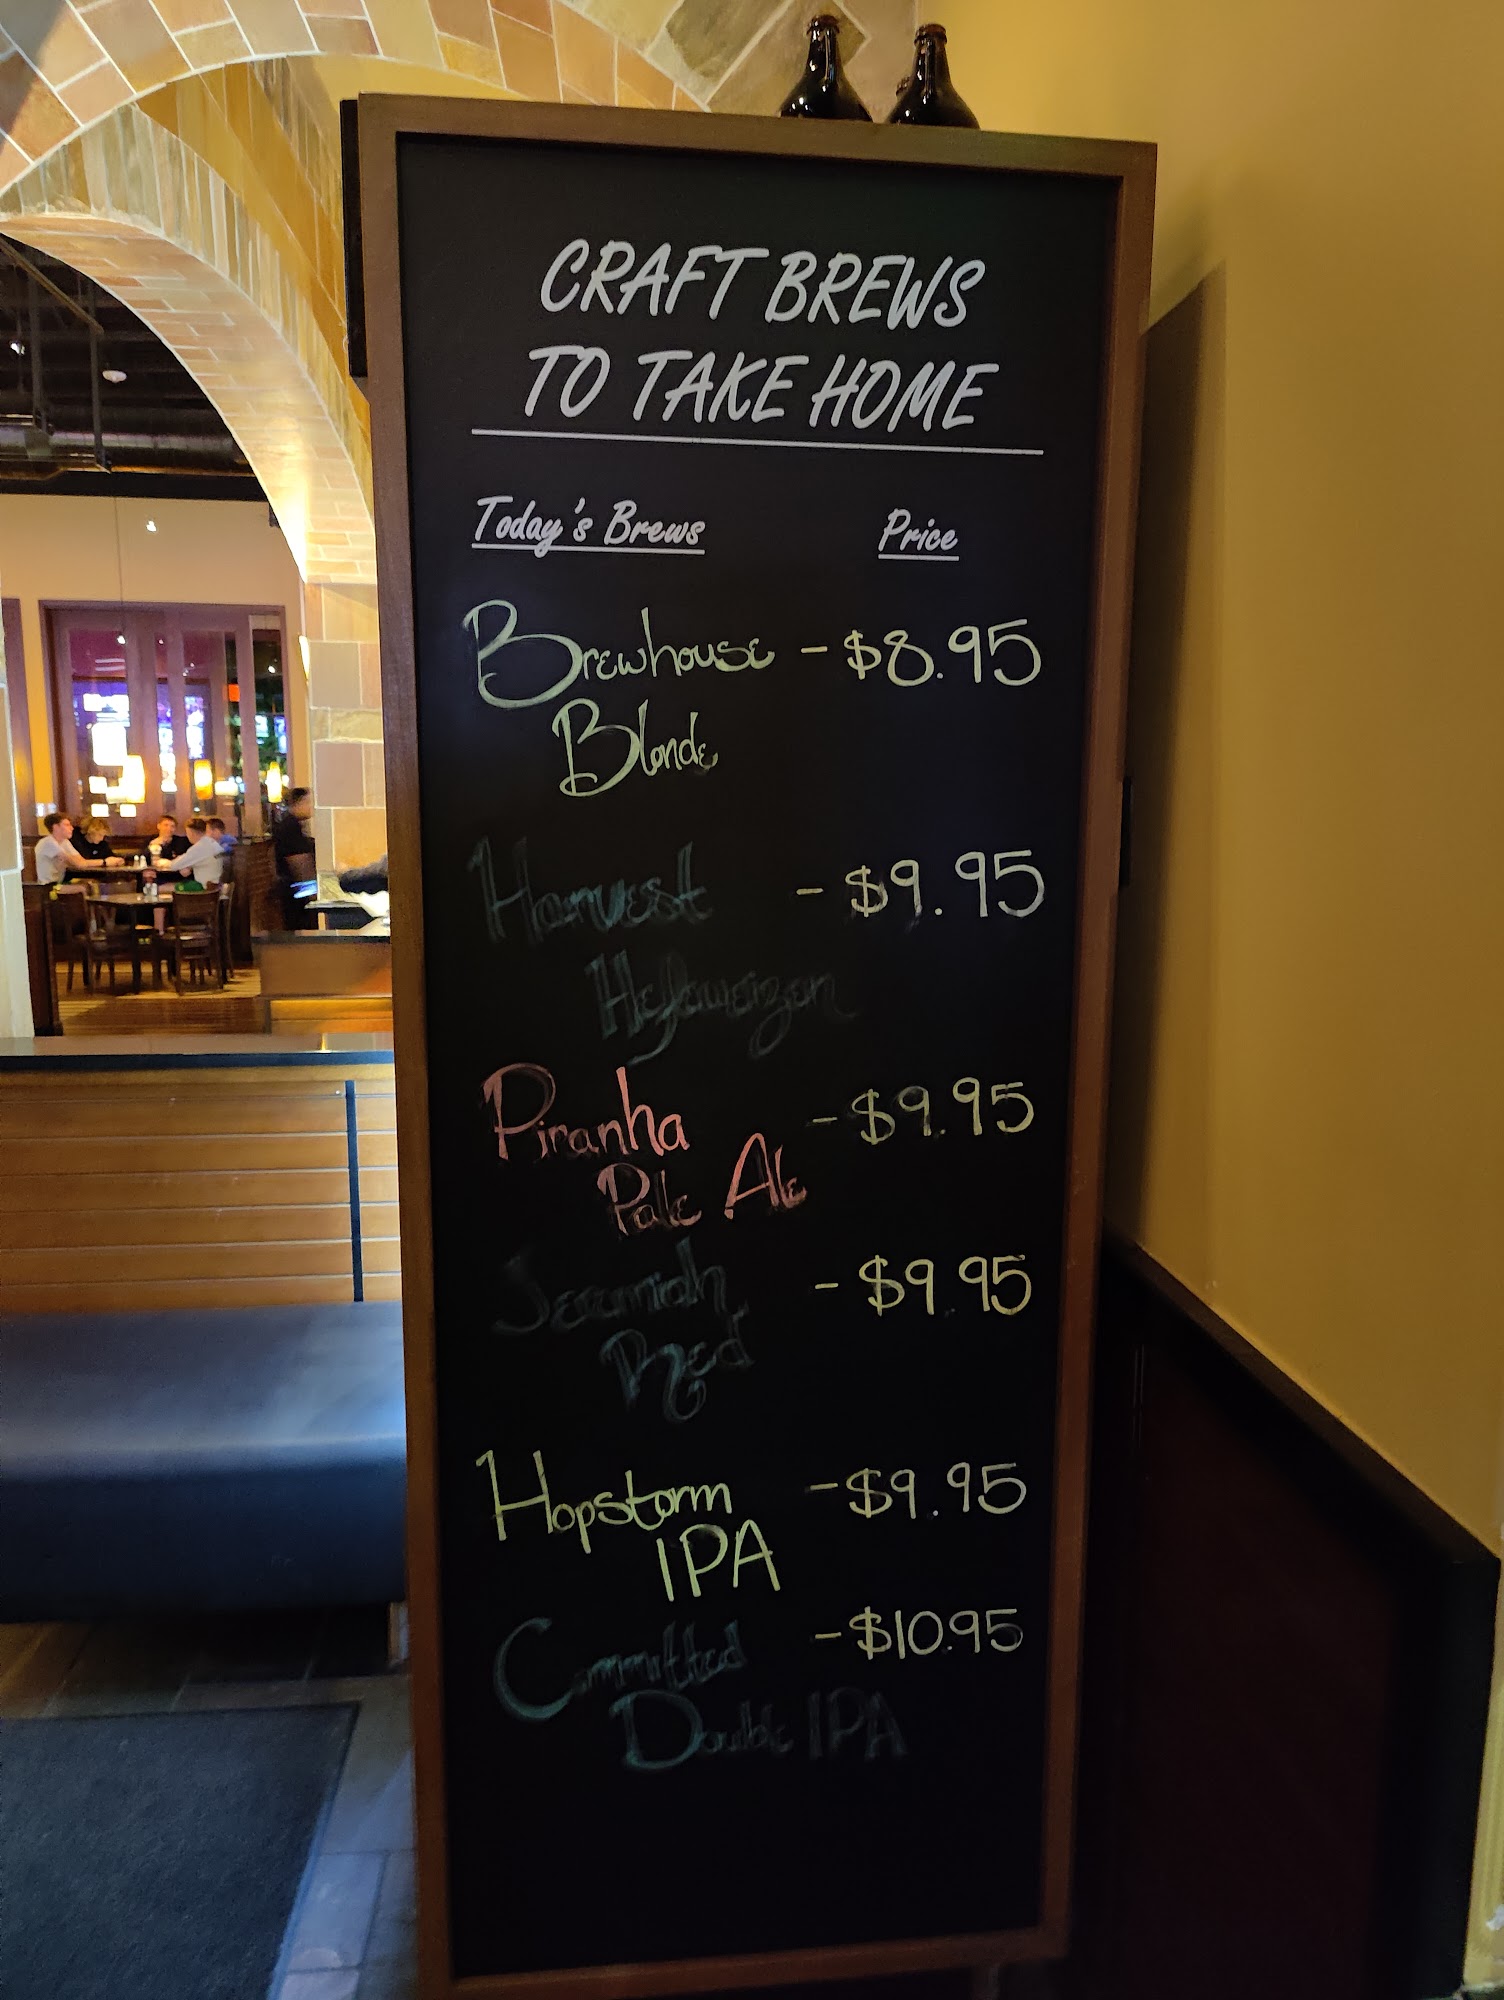 CRAFT BREWS
TO TAKE HOME
Today's Brews Price
Brewhouse - $8.95
Blonde
Harvest - $9.95
Hefeweizen
Piranha - $9.95
Pale Ale
Jeremiah - $9.95
Red
Hopstorm - $9.95
IPA
Committed - $10.95
Double IPA